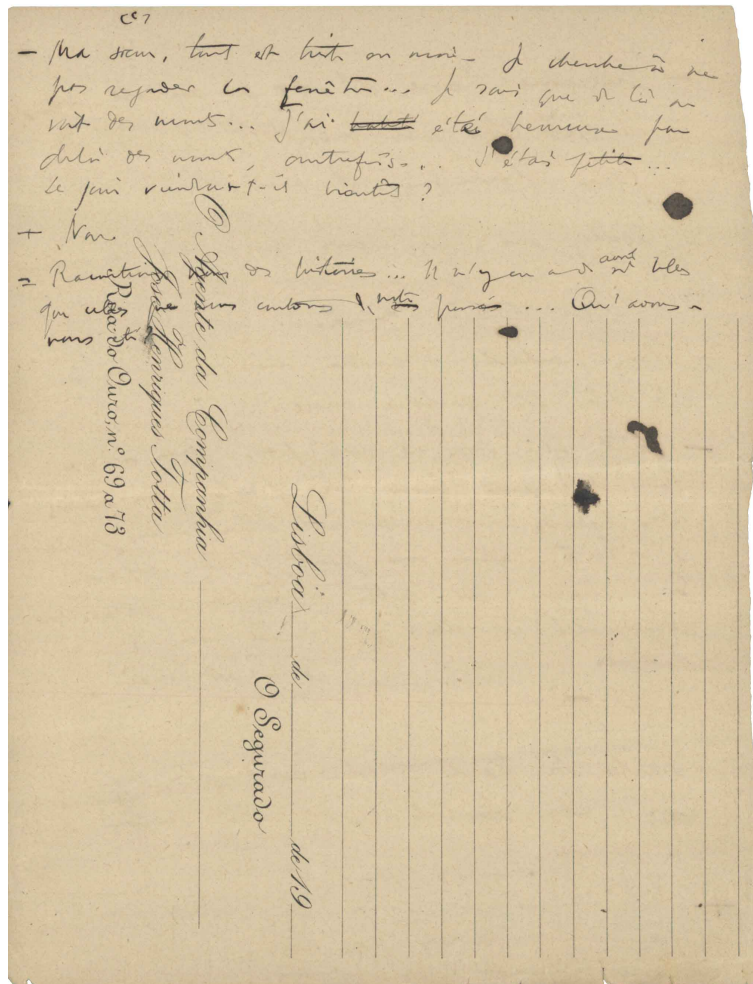 - Ma sœur, tout est triste en moi - Je cherche à ne
pas regarder la fenêtre... Je sais que de là on
voit des monts... J'ai été heureuse par
delà des monts, autrefois... J'étais petite...
Le jour viendra-t-il bientôt ?
+ Non
= des histoires... Il n'y en a de belles
que celles que nous contons passé... Qu'avons-
nous
O Agente da Companhia
José Henriques Totta
Rua do Ouro, nº 69 a 73
Lisboa de de 19
O Segurado